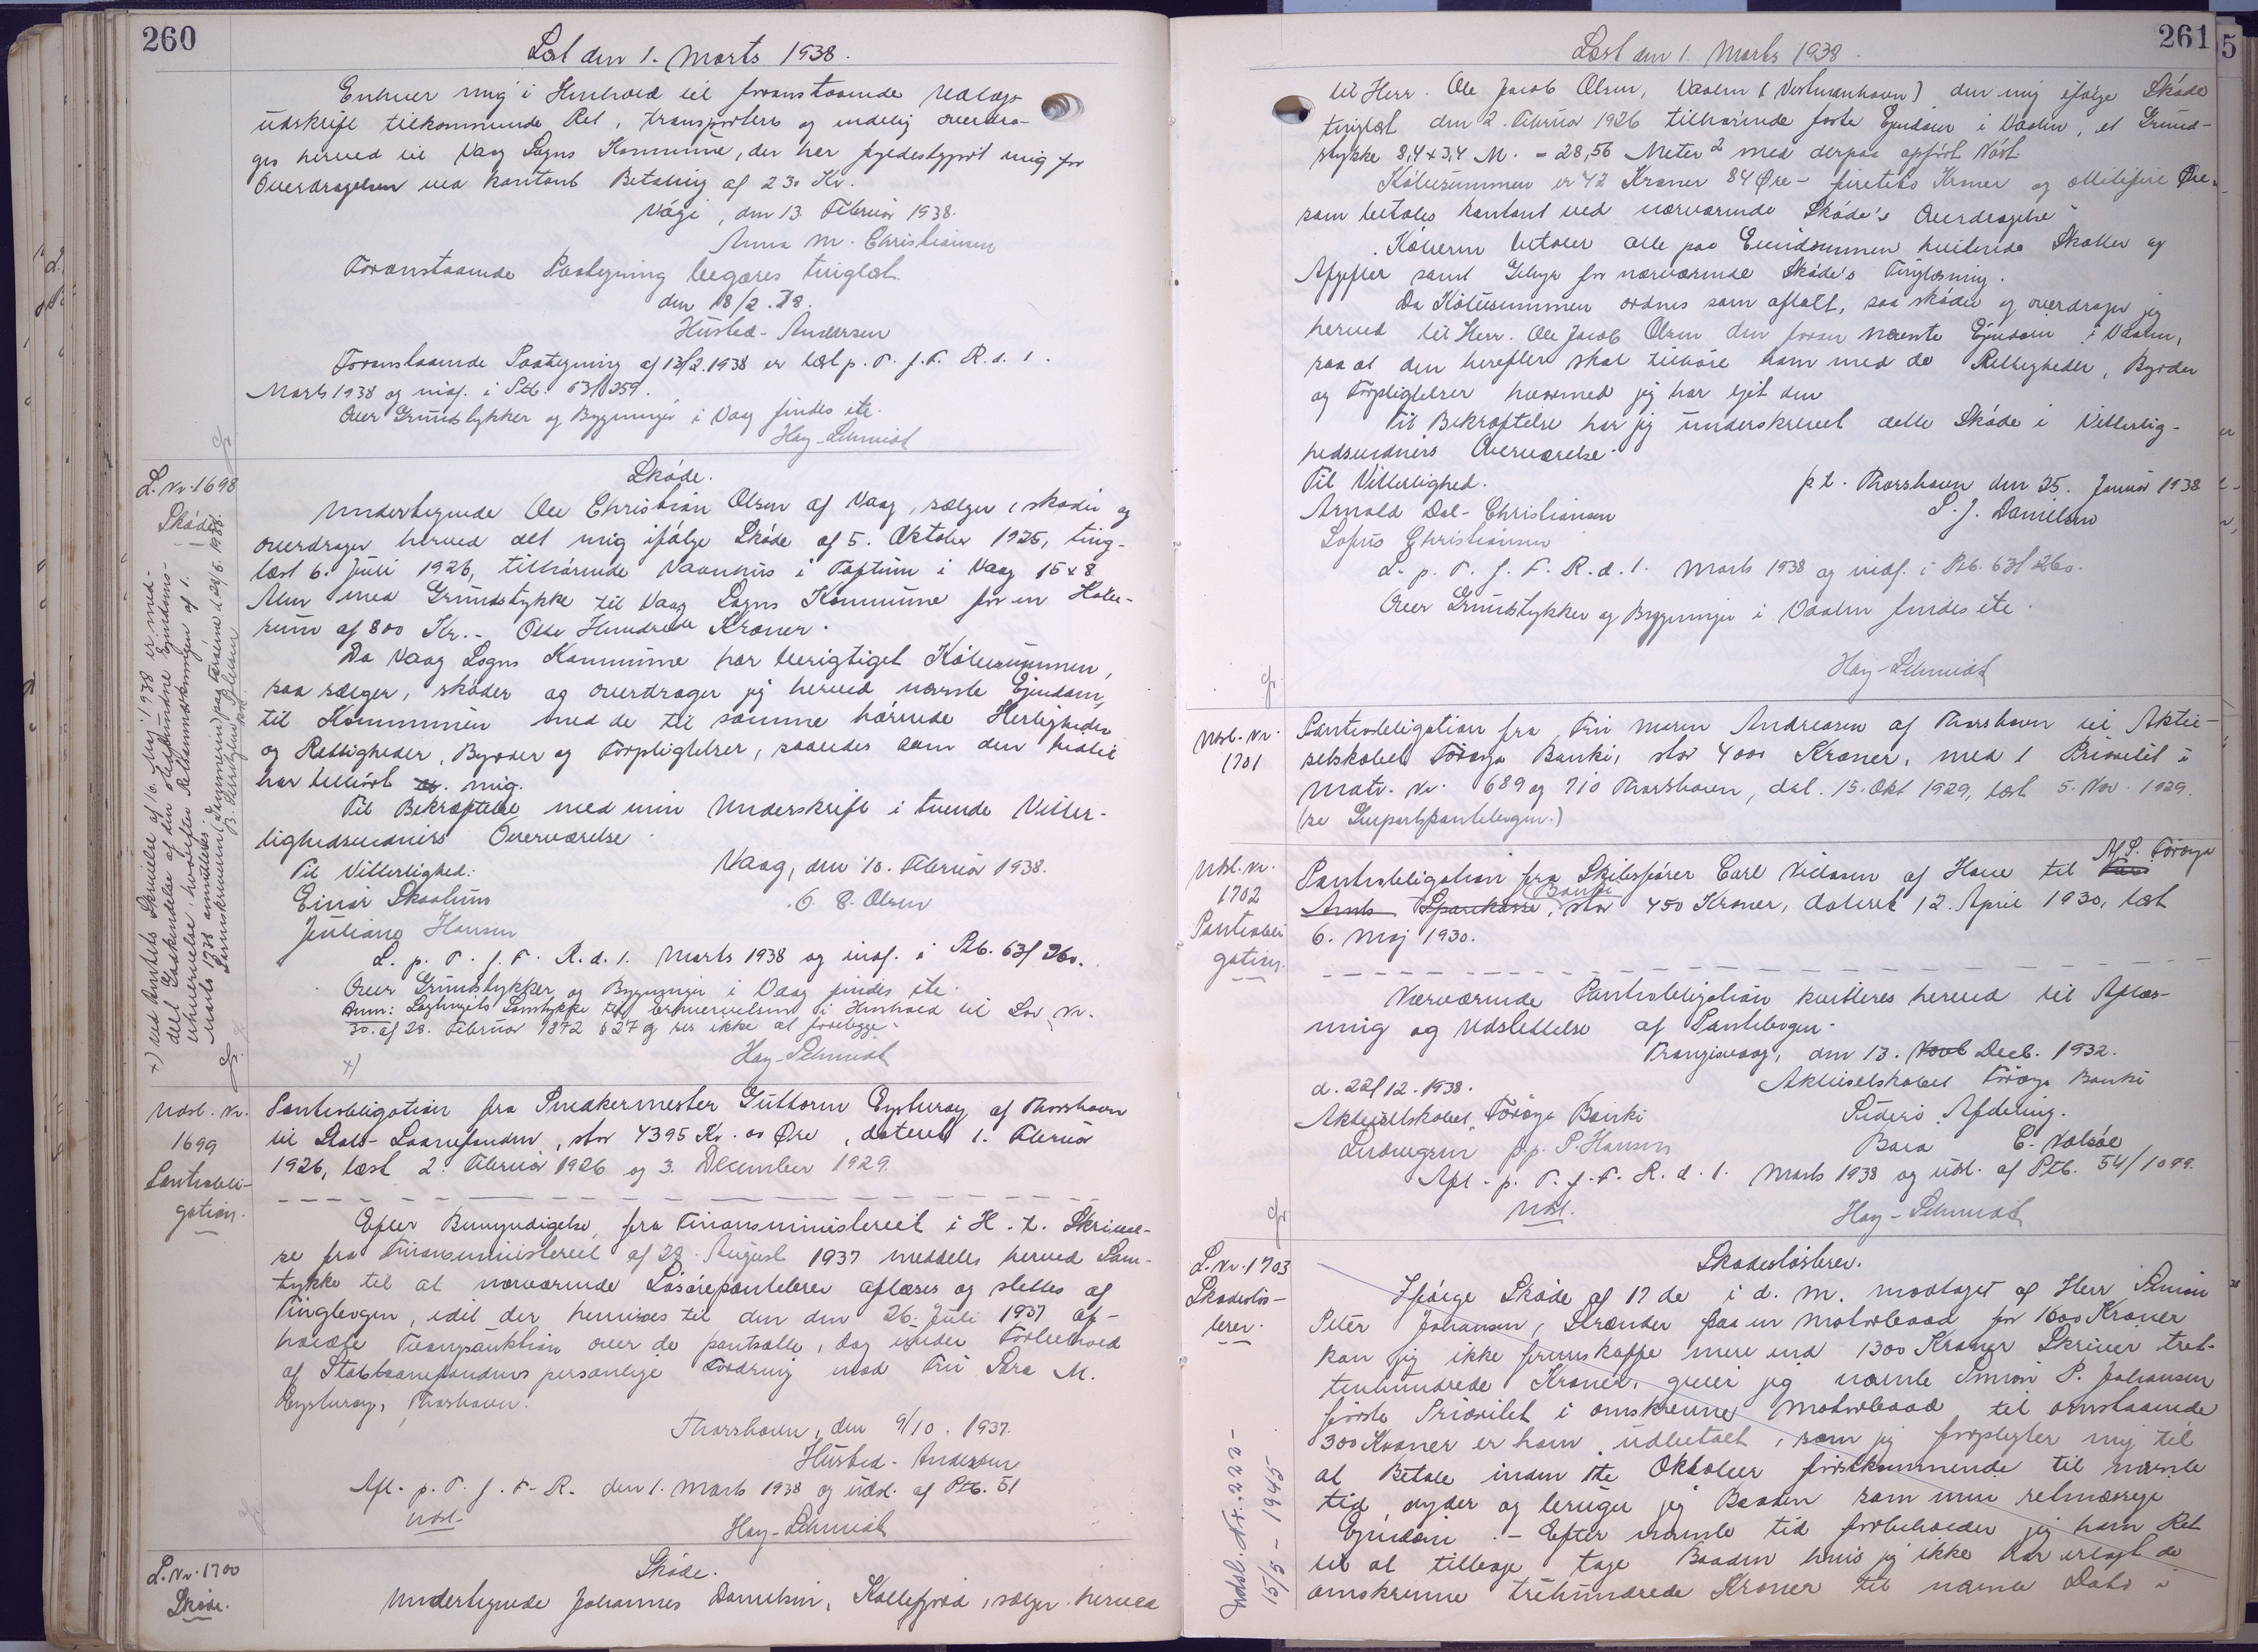 260
Læst den 1. Marts 1938.
Enhver mig i Henhold til foranstaaende Udlægs
udskrift tilkommende Ret, transporteres og endelig overdra-
ges herved til Vaag Sogns Kommune, der har fyldestgjort mig for
Overdragelsen ved kontant Betaling af 230 Kr.
Vági, den 13. Februar 1938.
Anna M. Christiansen
Foranstaaende Paategning begæres tinglæst
den 18/2.38.
Husted-Andersen
Foranstaaende Paategning af 13/2.1938 er læst p. T. f. F. R. d. 1.
Marts 1938 og indf. i Ptb. 63/259.
Over Grundstykker og Bygninger i Vaag findes ite.
Hay-Schmidt
L. Nr. 1698
Skøde.
Skøde.
Undertegnede Ole Christian Olsen af Vaag, sælger, skøder og
overdrager herved det mig ifølge Skøde af 5. Oktober 1925, ting-
læst 6. Juli 1926, tilhørende Vaanhus i Toftum i Vaag 15 x 8
Alen med Grundstykke til Vaag Sogns Kommune for en Købe-
sum af 800 Kr. - Otte Hundrede Kroner.
Da Vaag Sogns Kommune har berigtiget Købesummen,
saa sælger, skøder og overdrager jeg herved nævnte Ejendom,
til Kommunen med de til samme hørende Herligheder
og Rettigheder, Byrder og Forpligtelser, saaledes som den hidtil
har tilhørt mig.
Til Bekræftelse med min Underskrift i tvende Vitter-
lighedsvidners Overværelse.
Til Vitterlighed:
Vaag, den 10. Februar 1938.
Einar Skaalum
O. C. Olsen
Juliane Hansen
L. p. T. f. F. R. d. 1. Marts 1938 og indf. i Ptb. 63/260.
Over Grundstykker og Bygninger i Vaag findes ite.
Anm: Lagtingets Samtykke til Erhvervelsen i Henhold til Lov Nr.
30. af 28. Februar 1872 § 27 g ses ikke at foreligge.
x)
Hay-Schmidt
x) Ved Amtets Skrivelse af 16. Maj 1938 er med-
delt Godkendelse af den stedfundne Ejendoms-
erhvervelse, hvorefter Retsanmærkningen af 1.
Marts 1938 annulleres.
Udsl. Nr.
1699
Pantobli-
gation.
Pantobligation fra Snedkermester Guttorm Eysturoy af Thorshavn
til Stats-Laanefonden, stor 4395 Kr. 00 Øre, dateret 1. Februar
1926, læst 2. Februar 1926 og 3. December 1929.
Efter Bemyndigelse fra Finansministeriet i H. t. Skrivel-
se fra Finansministeriet af 28. August 1937 meddeles herved Sam-
tykke til at nærværende Løsørepantebrev aflæses og slettes af
Tingbogen, idet der henvises til den den 26. Juli 1937 af-
holdte Tvangsauktion over de pantsatte, dog under Forbehold
af Statslaanefondens personlige Fordring mod Fru Sara M.
Eysturoy, Thorshavn.
Thorshavn, den 9/10. 1937.
Husted-Andersen
Afl. p. T. f. F. R. den 1. Marts 1938 og udsl. af Ptb. 51
Udsl.
Hay-Schmidt
L. Nr. 1700
Skøde.
Skøde.
Undertegnede Johannes Danielsen, Kollefjord, sælger herved
261
Læst den 1. Marts 1938.
til Herr. Ole Jacob Olsen, Vaalen (Vestmanhavn) den mig ifølge Skøde
tinglæst den 2. Februar 1926 tilhørende faste Ejendom i Vaalen, et Grund-
stykke 8,4 x 3,4 M. = 28,56 Meter² med derpaa opført Nóst
Købesummen er 42 Kroner 84 Øre - firetito Kroner og ottitefire Øre
som betales kontant ved nærværende Skøde's Overdragelse
Køberen betaler alle paa Ejendommen hvilende Skatter og
Afgifter samt Gebyr for nærværende Skøde's Tinglæsning.
Da Købesummen ordnes som aftalt, saa skøder og overdrager jeg
herved til Herr. Ole Jacob Olsen den foran nævnte Ejendom i Vaalen,
saa at den herefter skal tilhøre ham med de Rettigheder, Byrder
og Forpligtelser hvormed jeg har ejet den
Til Bekræftelse har jeg underskrevet dette Skøde i Vitterlig-
hedsvidners Overværelse.
Til Vitterlighed.
p.t. Thorshavn den 25. Januar 1938
Arnold Dal-Christiansen
S. J. Danielsen
Sofus Christiansen
L. p. T. f. F. R. d. 1. Marts 1938 og indf. i Ptb. 63/260.
Over Grundstykker og Bygninger i Vaalen findes ite.
Hay-Schmidt
Udsl. Nr.
1701
Pantobligation fra Fru Maren Andreasen af Thorshavn til Aktie-
selskabet Føroya Banki, stor 4000 Kroner, med 1 Prioritet i
Matr. Nr. 689 og 710 Thorshavn, dat. 15. Okt 1929, læst 5. Nov. 1929.
(se Genpartspantebogen.)
Udsl. Nr.
1702
Pantobli
gation.
Pantobligation fra Skibsfører Carl Vidsson af Hove til A/S. Føroya
Amts Sparekasse Banki, stor 450 Kroner, dateret 12. April 1930, læst
6. Maj 1930.
Nærværende Pantobligation kvitteres herved til Aflæs-
ning og Udslettelse af Pantebogen.
Trangisvaag, den 13. Novb Decb. 1932.
d. 22/12.1938.
Aktieselskabet Føroya Banki
Aktieselskabet Føroya Banki
Suderø Afdeling.
p.p. P. Hansen
C. Nolsøe
Afl. p. T. f. F. R. d. 1. Marts 1938 og udsl. af Ptb. 54/1099.
Udsl.
Hay-Schmidt
L. Nr. 1703
Skadesløs-
brev.
Skadesløsbrev.
Ifølge Skøde af 17 de i d. M. modtaget af Herr Simon
Peter Johansen, Strender paa en Motorbaad for 1600 Kroner
kan jeg ikke fremskaffe mere end 1300 Kroner Skriver tret-
tenhundrede Kroner, giver jeg nævnte Simon P. Johansen
første Prioritet i omskrevne Motorbaad til omstaaende
300 Kroner er ham udbetalt, som jeg forpligter mig til
at Betale inden 1te Oktober førstkommende til nævnte
tid, nyder og bruger jeg Baaden som min retmæssige
Ejendom. - Efter nævnte tid forbeholder jeg ham Ret
til at tilbage tage Baaden hvis jeg ikke har erlagt de
omskrevne trehundrede Kroner til nævnte Dato i
Udsl. Nr. 220-
15/5-1945